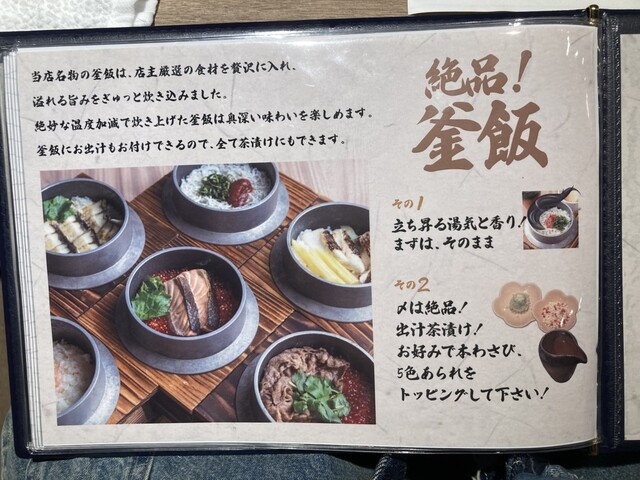 当店名物の釜飯は、店主厳選の食材を贅沢に入れ、
溢れる旨みをぎゅっと炊き込みました。
絶妙な温度加減で炊き上げた釜飯は奥深い味わいを楽しめます。
釜飯にお出汁もお付けできるので、全て茶漬けにもできます。
絶品!
釜飯
その1
立ち昇る湯気と香り!
まずは、そのまま
その2
〆は絶品!
出汁茶漬け!
お好みで本わさび、
5色あられを
トッピングして下さい!